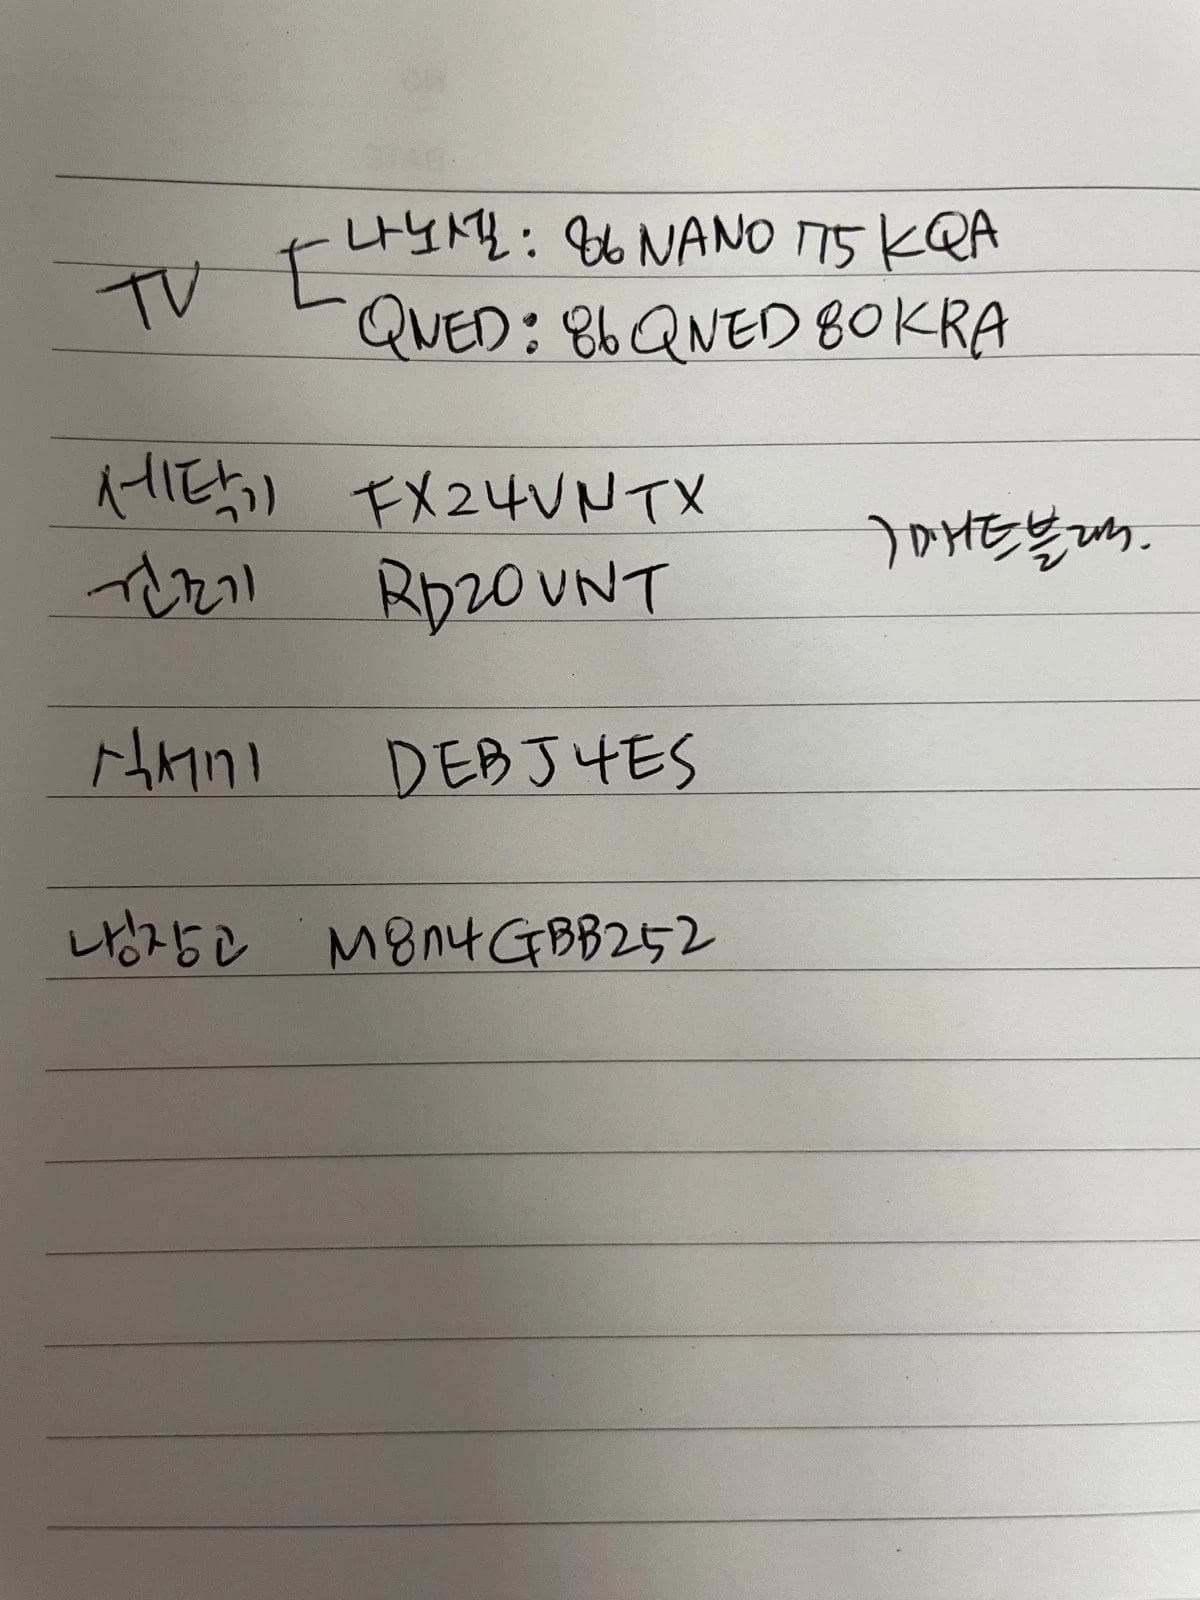 TV 나노셀: 86NANO75KQA
QNED: 86QNED80KRA
세탁기 FX24VNTX
건조기 RD20VNT
) 매트블랙.
식세기 DEBJ4ES
냉장고 M874GBB252